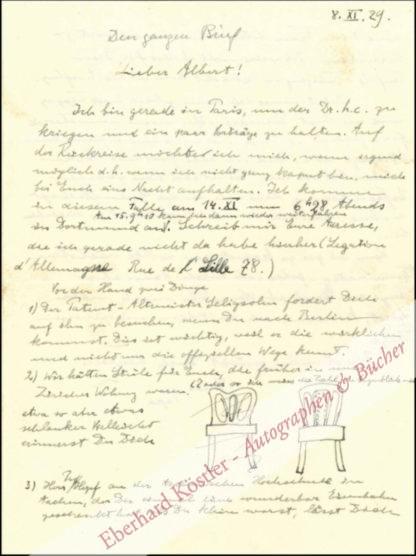 8. XI. 29.
Den ganzen Brief
Lieber Albert!
Ich bin gerade in Paris, um den Dr. h.c. zu
kriegen und ein paar Vorträge zu halten. Auf
der Rückreise möchte ich mich, wenn irgend
möglich d.h. wenn ich nicht ganz kaput bin,
bei Euch eine Nacht aufhalten. Ich komme
in diesem Falle am 14. XI um 6h28 Abends
Am 15. 9h10 kann ich dann wieder weiterfahren
in Dortmund an. Schreib mir Eure Adresse,
die ich gerade nicht da habe hierher (Legation
d'Allemagne Rue de Lille 78.)
Vor der Hand zwei Dinge
1) Der Patent-Altmeister Seligsohn fordert Dich
auf ihn zu besuchen, wenn Du nach Berlin
kommst. Dies ist wichtig, weil er die wirklichen
und nicht nur die offiziellen Wege kennt.
2) Wir hätten Stühle für Euch, die früher in
Zürcher Wohnung waren.
etwa so oder etwas
schlanker Vielleicht
erinnerst Du Dich
3) Herr an der Hochschule in
Aachen, der Dir eine wunderbare Eisenbahn
geschenkt hat, Du klein warst, lässt Dich
Eberhard Köstler - Autographen & Bücher